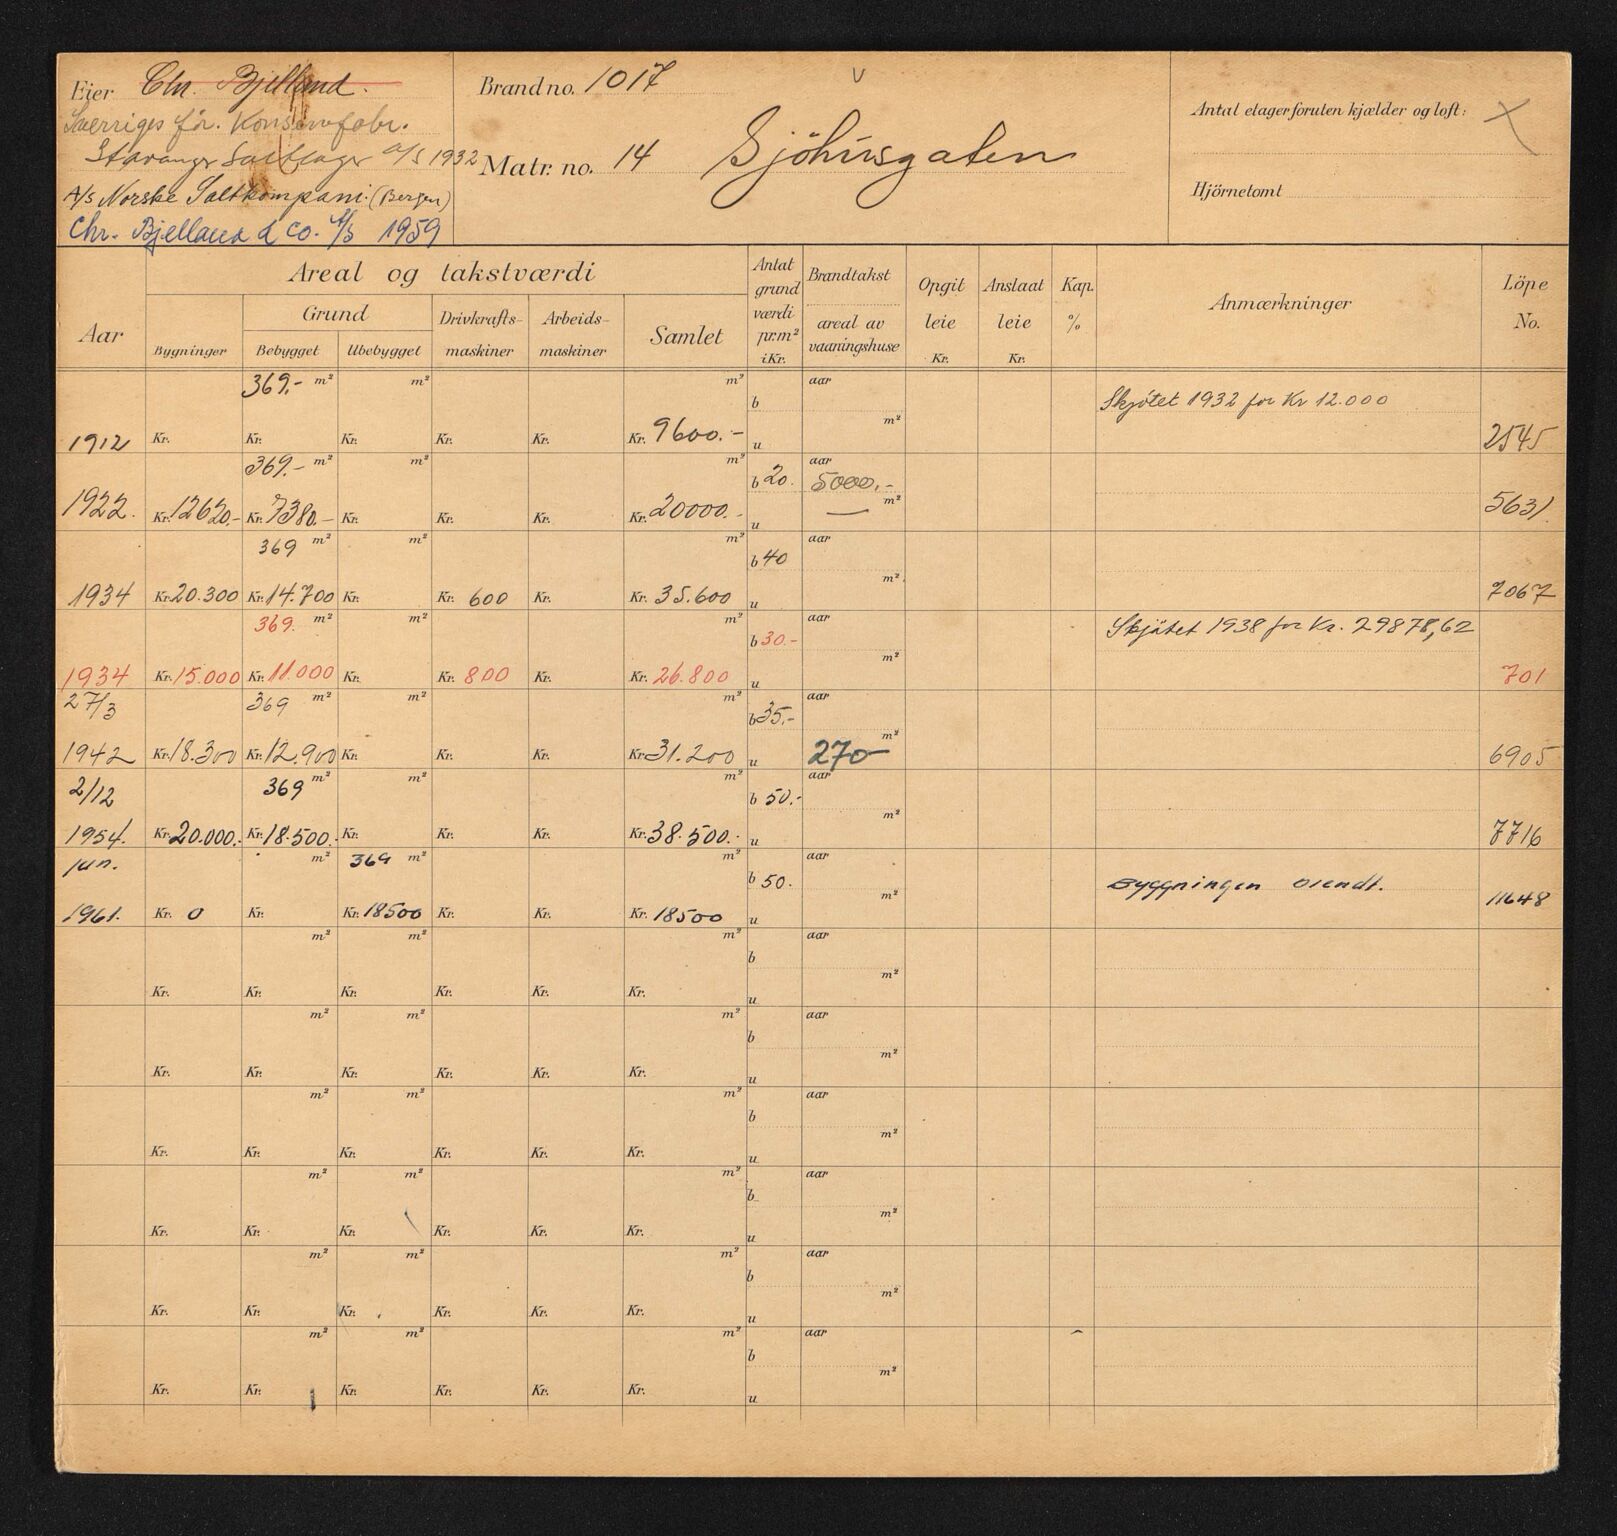 Eier Chr. Bjelland.
Sverrigesför. Konservfabr.
Stavanger Saltlager A/S 1932
A/S Norske Saltkompani. (Bergen)
Chr. Bjelland & Co. A/S 1959
Brand no. 1017
Matr. no. 14 Sjöhusgaten
Antal etager foruten kjælder og loft:
Hjörnetomt
Areal og takstværdi
Aar
Bygninger
Grund
Bebygget Ubebygget
Drivkrafts-maskiner
Arbeids-maskiner
Samlet
Antat grund værdi pr. m² i Kr.
Brandtakst
areal av vaaningshuse
Opgit leie Kr.
Anslaat leie Kr.
Kap. %
Anmærkninger
Löpe No.
369.- m² m² m² aar
b Skjötet 1932 for Kr 12.000
m²
1912 Kr. Kr. Kr. Kr. Kr. Kr. 9600.- u 2545
369.- m² m² m² aar
b 20. 5000.-
m²
1922. Kr. 12620.- Kr. 7380.- Kr. Kr. Kr. Kr. 20000.- u 5631
369 m² m² m² aar
b 40
m²
1934 Kr. 20.300 Kr. 14.700 Kr. Kr. 600 Kr. Kr. 35.600 u 7067
369. m² m² m² aar
b 30.- Skjötet 1938 for Kr. 29878,62
m²
1934 Kr. 15.000 Kr. 11.000 Kr. Kr. 800 Kr. Kr. 26.800 u 701
27/3 369 m² m² m² aar
b 35.-
m²
1942 Kr. 18.300 Kr. 12.900 Kr. Kr. Kr. Kr. 31.200 u 270 6905
2/12 369 m² m² m² aar
b 50.-
m²
1954. Kr. 20.000.- Kr. 18.500.- Kr. Kr. Kr. Kr. 38.500.- u 7716
jun. m² 369 m² m² aar
b 50. Byggningen brendt.
m²
1961. Kr. 0 Kr. Kr. 18500 Kr. Kr. Kr. 18500 u 11648
m² m² m² aar
b
m²
Kr. Kr. Kr. Kr. Kr. Kr. u
m² m² m² aar
b
m²
Kr. Kr. Kr. Kr. Kr. Kr. u
m² m² m² aar
b
m²
Kr. Kr. Kr. Kr. Kr. Kr. u
m² m² m² aar
b
m²
Kr. Kr. Kr. Kr. Kr. Kr. u
m² m² m² aar
b
m²
Kr. Kr. Kr. Kr. Kr. Kr. u
m² m² m² aar
b
m²
Kr. Kr. Kr. Kr. Kr. Kr. u